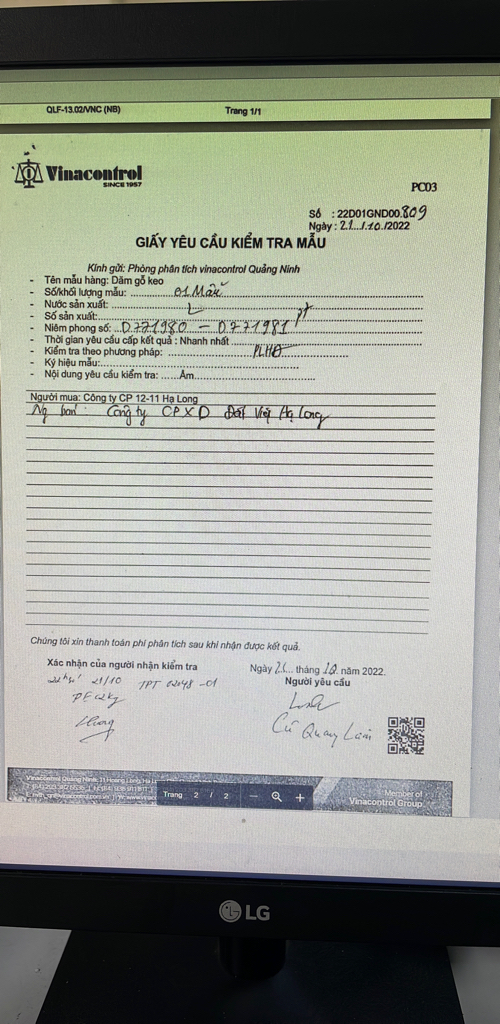 QLF-13.02/VNC (NB) Trang 1/1
Vinacontrol
SINCE 1957
PC03
Số : 22D01GND00.809
Ngày : 21.../10./2022
GIẤY YÊU CẦU KIỂM TRA MẪU
Kính gửi: Phòng phân tích vinacontrol Quảng Ninh
- Tên mẫu hàng: Dăm gỗ keo
- Số/khối lượng mẫu: 01 Mẫu
- Nước sản xuất:
- Số sản xuất:
- Niêm phong số: D771980 – D771981
- Thời gian yêu cầu cấp kết quả : Nhanh nhất
- Kiểm tra theo phương pháp: PLHĐ
- Ký hiệu mẫu:
- Nội dung yêu cầu kiểm tra: ......Ẩm
Người mua: Công ty CP 12-11 Hạ Long
Ng bán: Công ty CPXD Đất Việt Hạ Long
Chúng tôi xin thanh toán phí phân tích sau khi nhận được kết quả.
Xác nhận của người nhận kiểm tra
Ngày 21... tháng 10. năm 2022.
Người yêu cầu
21/10 TPT 02048 -01
PE 02kg
Cù Quang Lâm
Vinacontrol Quảng Ninh: 11 Hoàng Long, Hạ L
Trang 2 / 2
Member of
Vinacontrol Group
LG